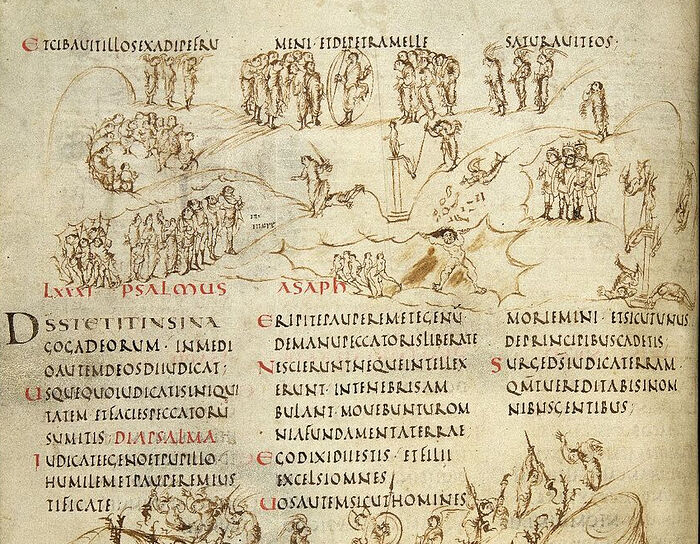 ETCIBAUITILLOSEXADIPEFRU MENI·ETDEPETRAMELLE SATURAUITEOS·
LXXXI PSALMUS ASAPH
DS STETITINSINA
GOGADEORUM· INMEDI
OAUTEMDEOSDIIUDICAT;
USQUEQUOIUDICATISINIQUI
TATEM ETFACIESPECCATORŪ
SUMITIS· DIAPSALMA
IUDICATEEGENOETPUPILLO·
HUMILEMETPAUPEREMIUS
TIFICATE·
ERIPITEPAUPEREMETEGENŪ·
DEMANUPECCATORISLIBERATE
NESCIERUNTNEQUEINTELLEX
ERUNT· INTENEBRISAM
BULANT· MOUEBUNTUROM
NIAFUNDAMENTATERRAE
EGODIXIDIIESTIS· ETFILII
EXCELSIOMNES
UOSAUTEMSICUTHOMINES
MORIEMINI· ETSICUTUNUS
DEPRINCIPIBUSCADETIS·
SURGED̄SIUDICATERRAM·
QM̄TUEREDITABISINOM
NIBUSGENTIBUS;